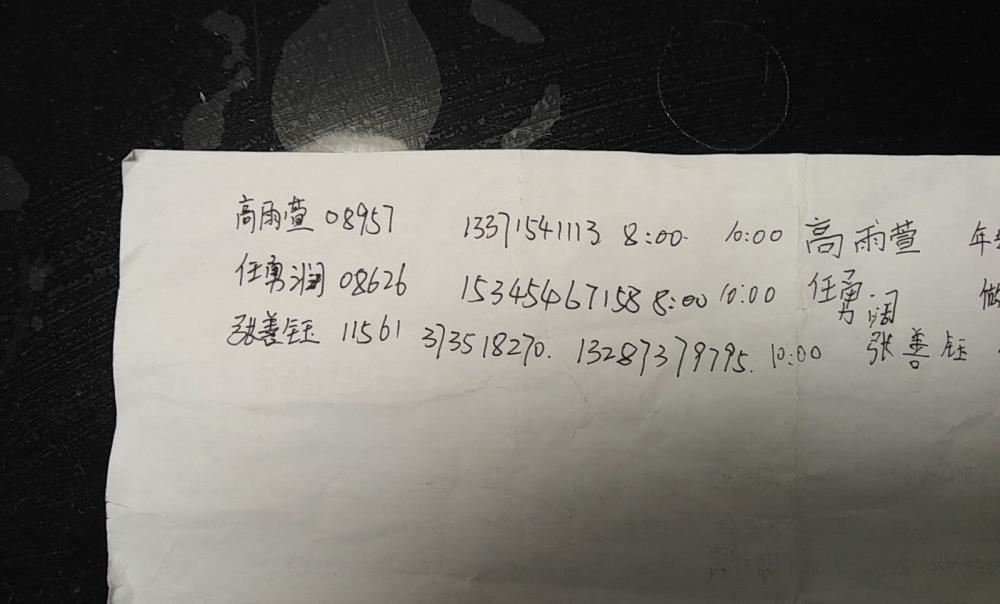 高雨萱 08957 13371541113 8:00 10:00 高雨萱
任勇润 08626 15345467158 8:00 10:00 任勇润
张善钰 11561 373518270. 13287379795. 10:00 张善钰